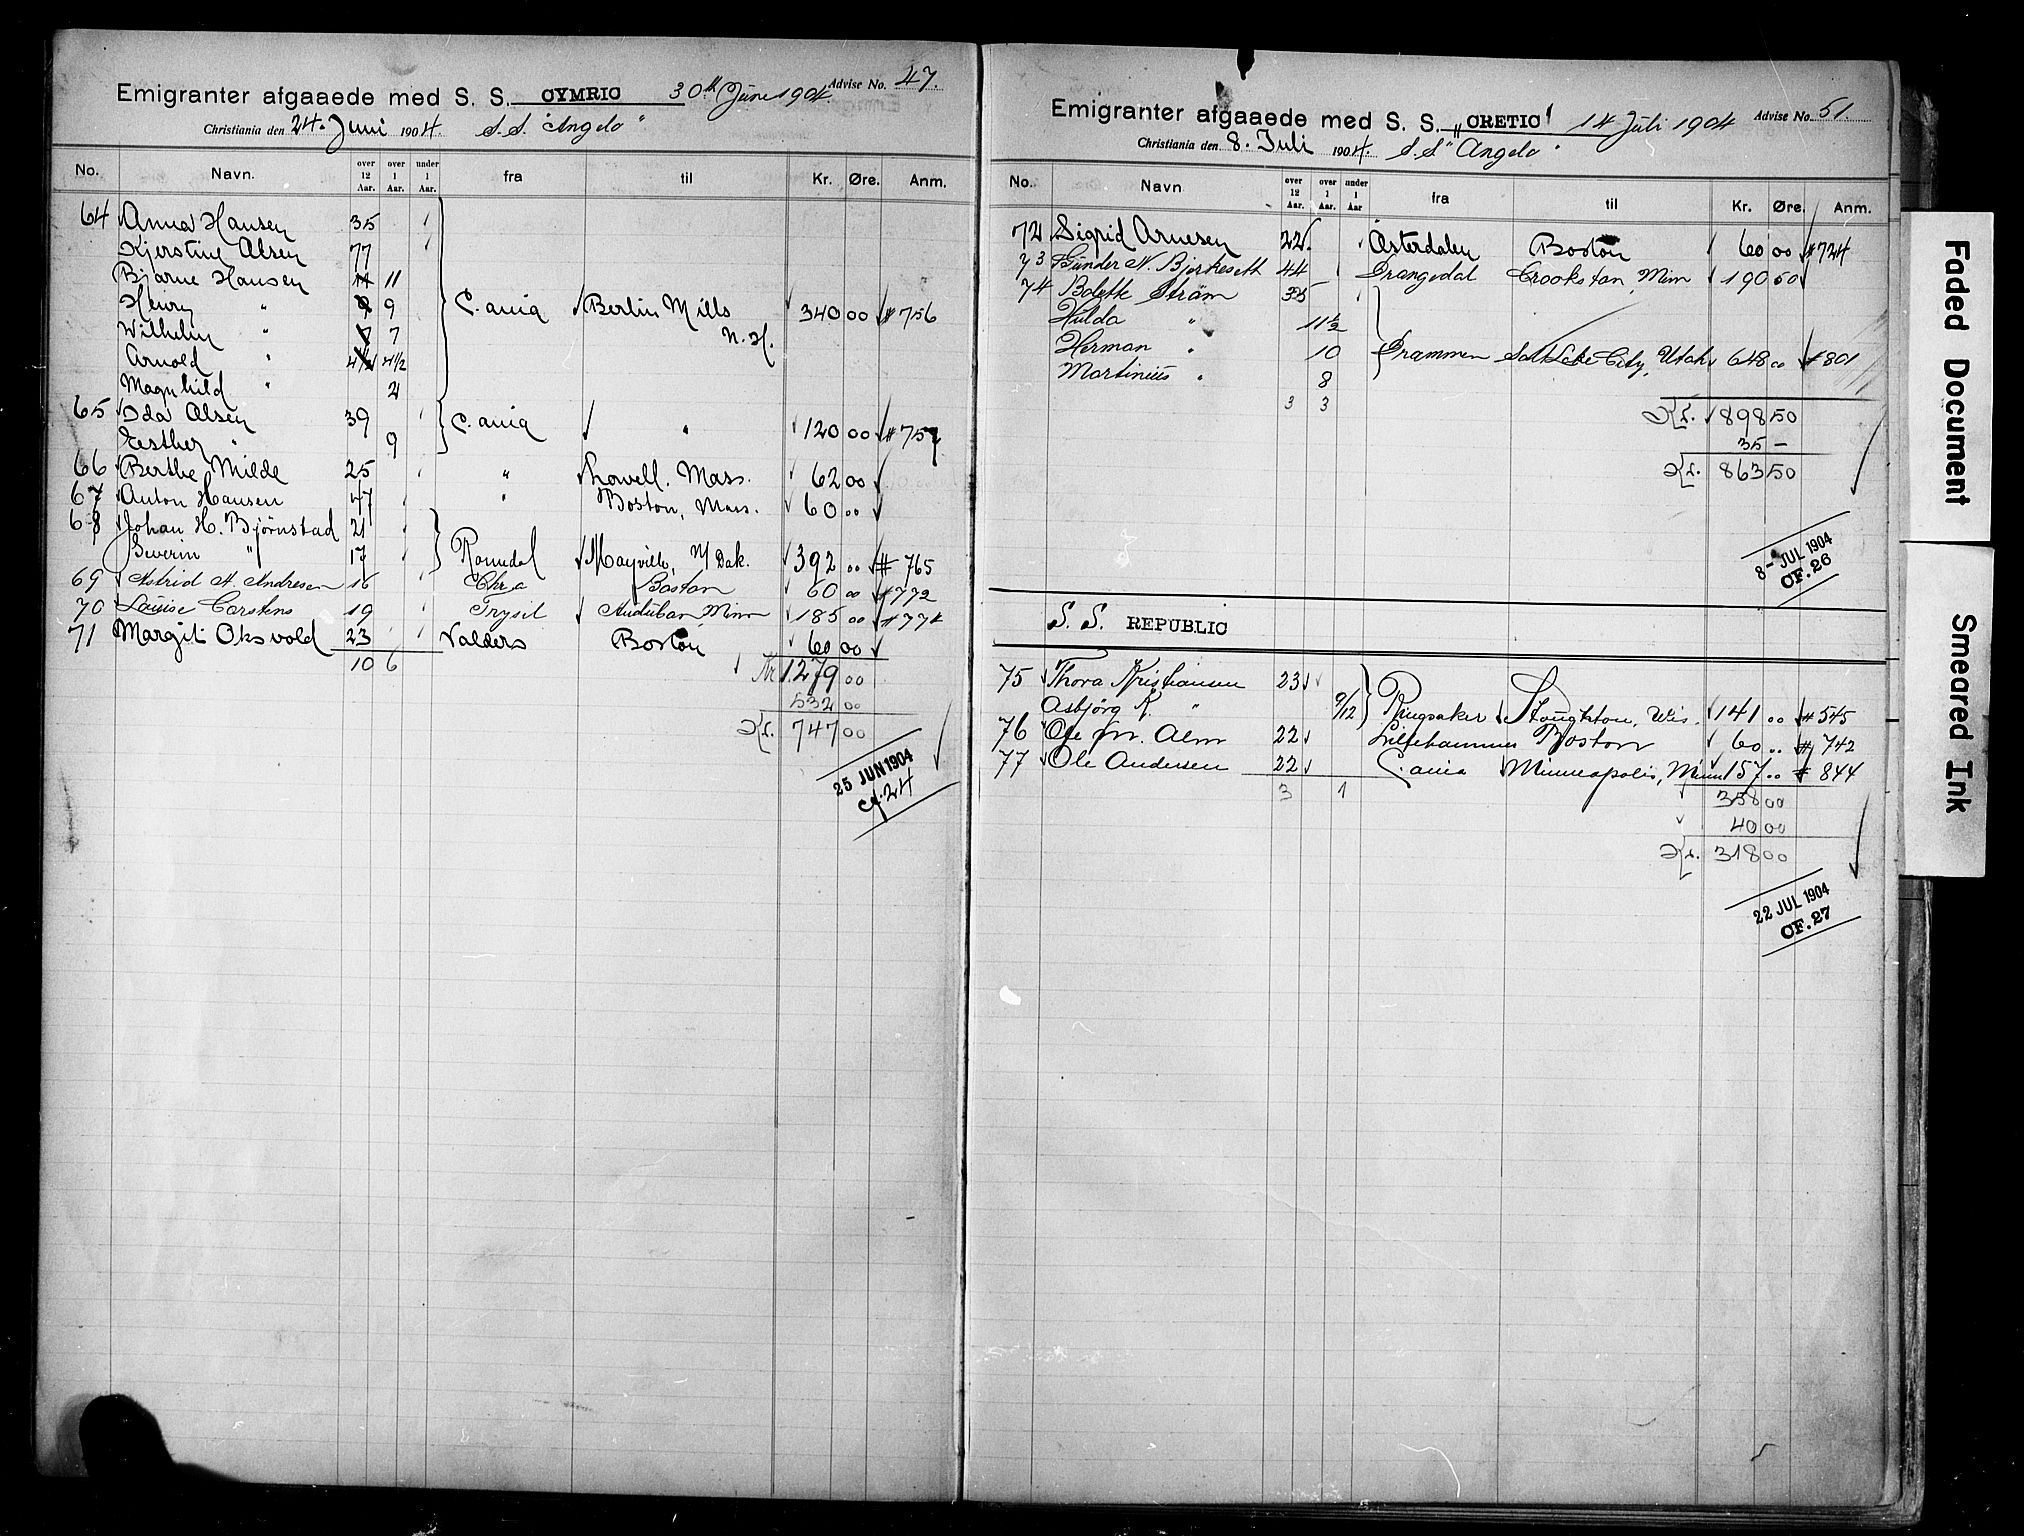 Emigranter afgaaede med S. S. CYMRIC 30th June 1904. Advise No. 47.
Christiania den 24. Juni 1904. S.S. "Angelo"
No. Navn. over 12 Aar. over 1 Aar. under 1 Aar. fra til Kr. Øre. Anm.
64 Anna Hansen 35
Kjerstine Olsen 77
Bjarne Hansen 11 11
Henry " 9 9
C.ania Berlin Mills N.H. 340 00 # 756
Wilhelm " 7 7
Arnold " 4½ 4½
Magnhild " 2
65 Ida Olsen 39
C.ania " 120 00 # 757
Esther " 9
66 Berthe Milde 25 " Lowell, Mass. 62 00
67 Anton Hansen 47 " Boston, Mass. 60 "
68 Johan H. Bjørnstad 21
Severin " 17 Romedal Mayville, N/Dak. 392 " # 765
69 Astrid A. Andresen 16 Chra Boston 60 00 # 772
70 Louise Carstens 19 Trysil Audubon Minn 185 00 # 774
71 Margit Oksvold 23 Valders Boston 60 00
10 6 Kr 1.279 00
532 00
Kr. 747 00
25 JUN 1904
CF. 24
Emigranter afgaaede med S. S. "CRETIC" 14 Juli 1904 Advise No. 51.
Christiania den 8. Juli 1904. S.S. "Angelo"
No. Navn over 12 Aar. over 1 Aar. under 1 Aar fra til Kr. Øre. Anm.
72 Sigrid Arnesen 22. Østerdalen Boston 60 00 # 724
73 Gunder N. Bjerkeseth 44 Drangedal Crookston, Minn 190 50
74 Bolette Strøm 35
Hulda " 11½
Herman " 10 Drammen Salt Lake City, Utah 648 00 # 801
Martinius " 8
3 3 Kr. 898 50
35 -
Kr. 863 50
8- JUL 1904
CF. 26
S. S. REPUBLIC
75 Thora Kristiansen 23
Asbjørg K. " 9/12 Ringsaker Stoughton, Wis. 141 00 # 545
76 Ole M. Alm 22 Lillehammer Boston 60 " # 742
77 Ole Andersen 22 C.ania Minneapolis, Minn 157 00 # 844
3 1 358 00
40 00
Kr. 318 00
22 JUL 1904
CF. 27
Faded Document
Smeared Ink